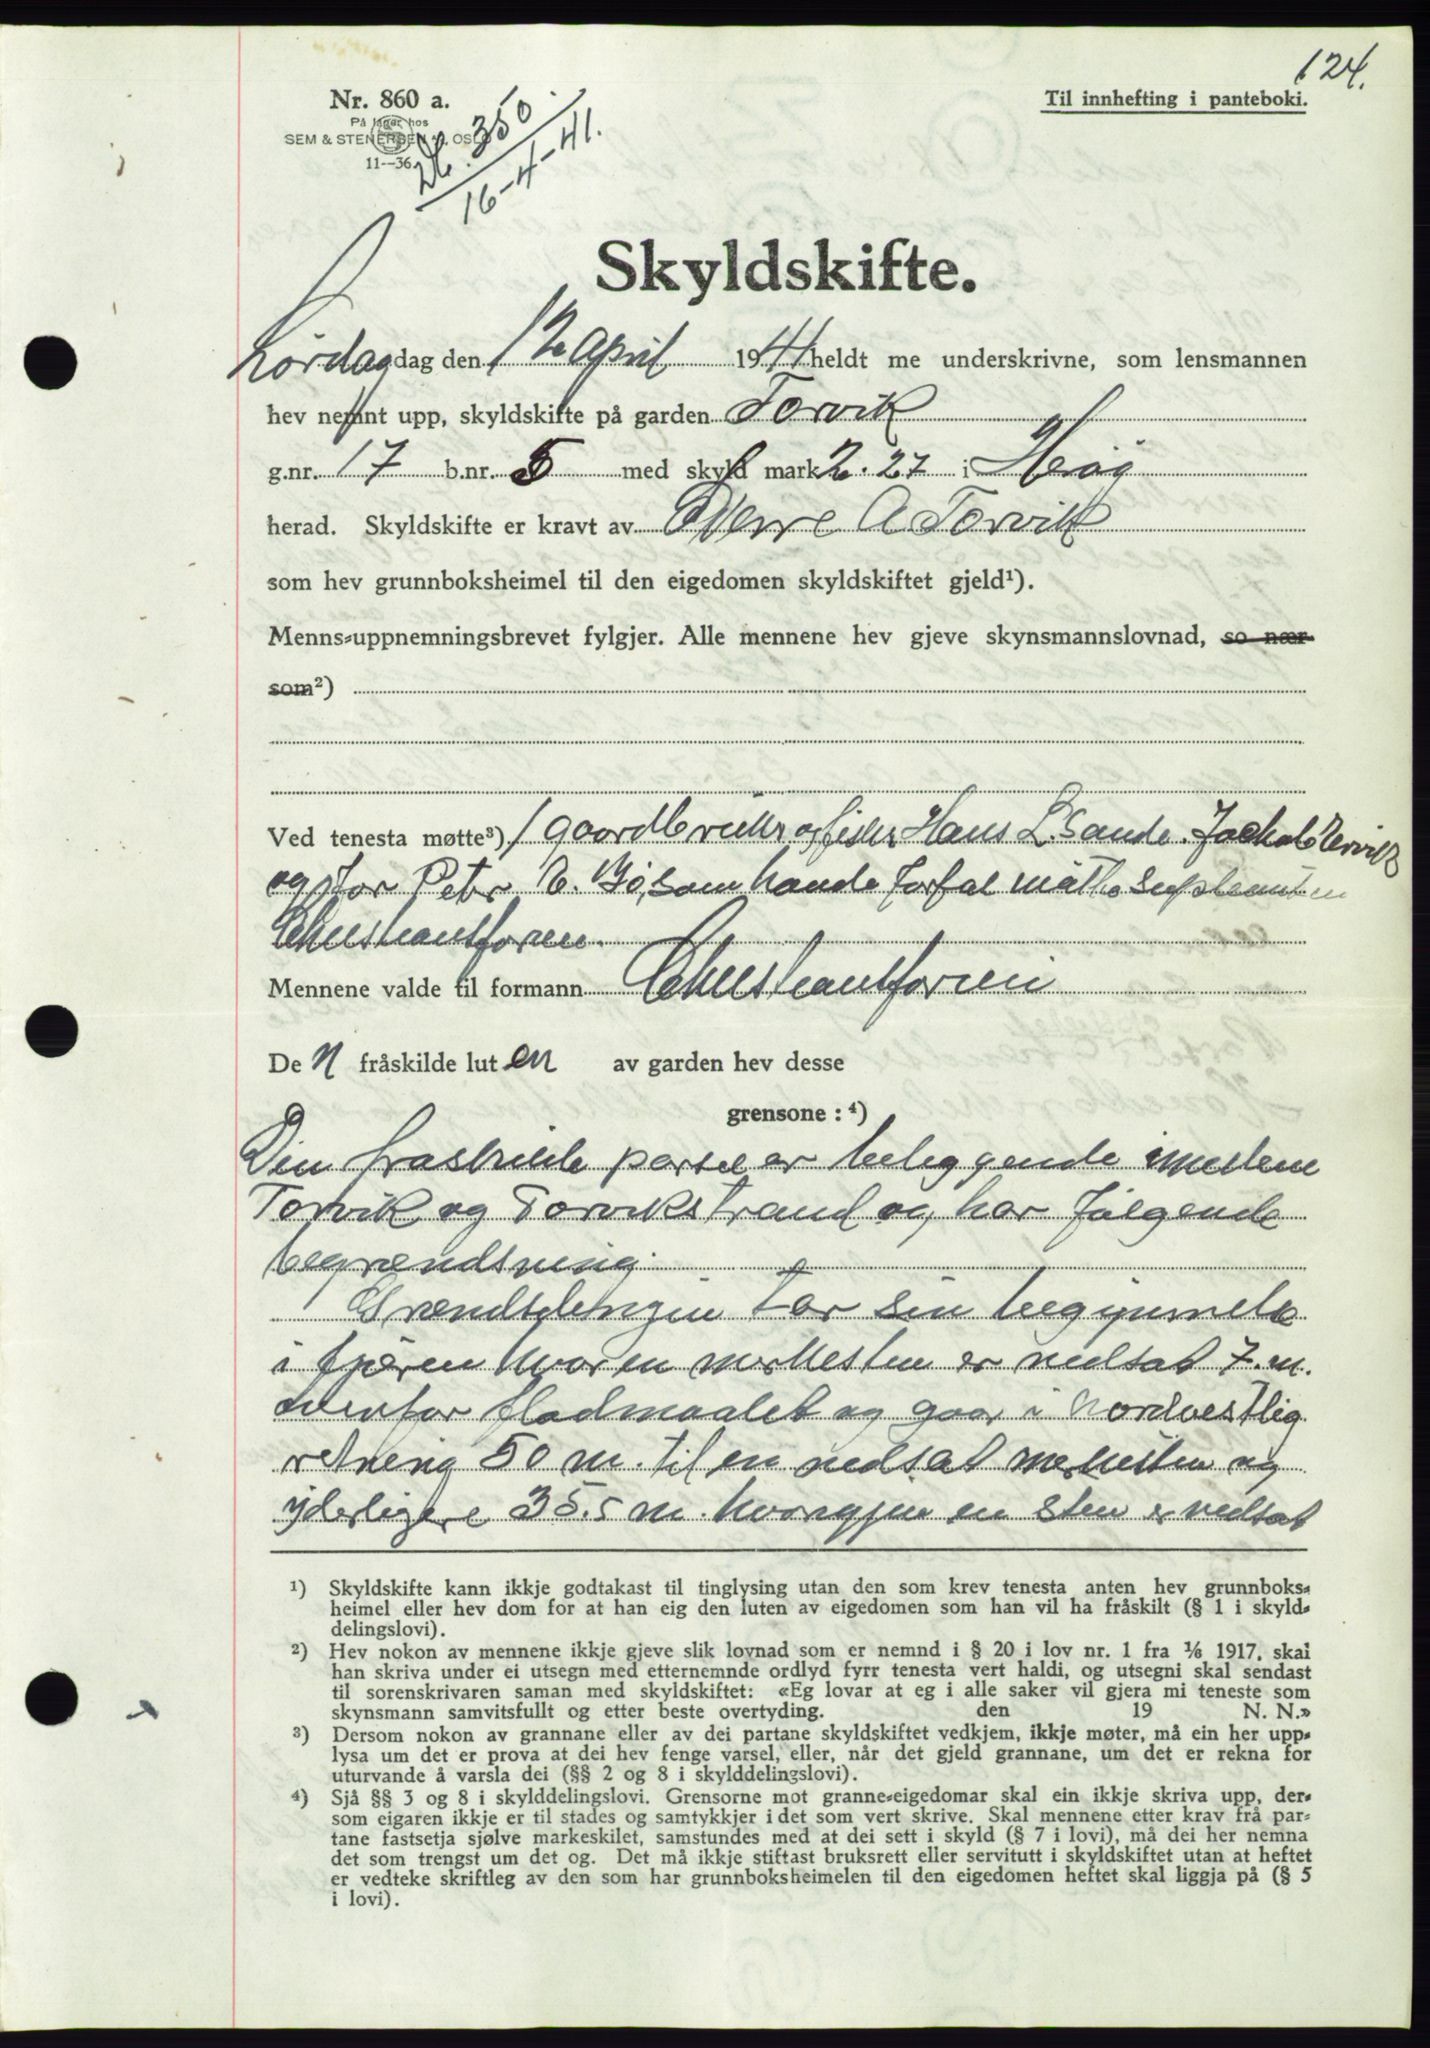 124.
Nr. 860 a.
Til innhefting i panteboki.
På lager hos
SEM & STENERSEN A/S, OSLO
11--36
350
16-4-41.
Skyldskifte.
Lørdag dag den 12 april 1941 heldt me underskrivne, som lensmannen
hev nemnt upp, skyldskifte på garden Torvik
g.nr. 17 b.nr. 5 med skyld mark 2.27 i Herøy
herad. Skyldskifte er kravt av Sverre A Torvik
som hev grunnboksheimel til den eigedomen skyldskiftet gjeld¹).
Menns-uppnemningsbrevet fylgjer. Alle mennene hev gjeve skynsmannslovnad, so nær
som²)
Ved tenesta møtte³) gaardbruker og fisker Hans L. Sande. Jackob
og for Peter E. Bø, som havde forfal møtte suplenten
Mennene valde til formann
De n fråskilde lut en av garden hev desse
grensone : ⁴)
Den fraskilde parsel er beliggende imellem
Torvik og Torvikstrand og har følgende
begrændsning.
Grændselinjen tar sin begynnelse
i fjæren hvor en merkesten er nedsat 7. m.
ovenfor flodmaalet og gaar i nordvestlig
retning 50 m. til en nedsat merkesten og
yderligere 35.5 m. hvor igjen en sten er nedsat
¹) Skyldskifte kann ikkje godtakast til tinglysing utan den som krev tenesta anten hev grunnboks-
heimel eller hev dom for at han eig den luten av eigedomen som han vil ha fråskilt (§ 1 i skyld-
delingslovi).
²) Hev nokon av mennene ikkje gjeve slik lovnad som er nemnd i § 20 i lov nr. 1 fra 1/6 1917, skal
han skriva under ei utsegn med etternemnde ordlyd fyrr tenesta vert haldi, og utsegni skal sendast
til sorenskrivaren saman med skyldskiftet: «Eg lovar at eg i alle saker vil gjera mi teneste som
skynsmann samvitsfullt og etter beste overtyding. den 19 N. N.»
³) Dersom nokon av grannane eller av dei partane skyldskiftet vedkjem, ikkje møter, må ein her upp-
lysa um det er prova at dei hev fenge varsel, eller, når det gjeld grannane, um det er rekna for
uturvande å varsla dei (§§ 2 og 8 i skylddelingslovi).
⁴) Sjå §§ 3 og 8 i skylddelingslovi. Grensorne mot granne-eigedomar skal ein ikkje skriva upp, der-
som eigaren ikkje er til stades og samtykkjer i det som vert skrive. Skal mennene etter krav frå par-
tane fastsetja sjølve markeskilet, samstundes med at dei sett i skyld (§ 7 i lovi), må dei her nemna
det som trengst um det og. Det må ikkje stiftast bruksrett eller servitutt i skyldskiftet utan at heftet
er vedteke skriftleg av den som har grunnboksheimelen til den eigedomen heftet skal liggja på (§ 5
i lovi).